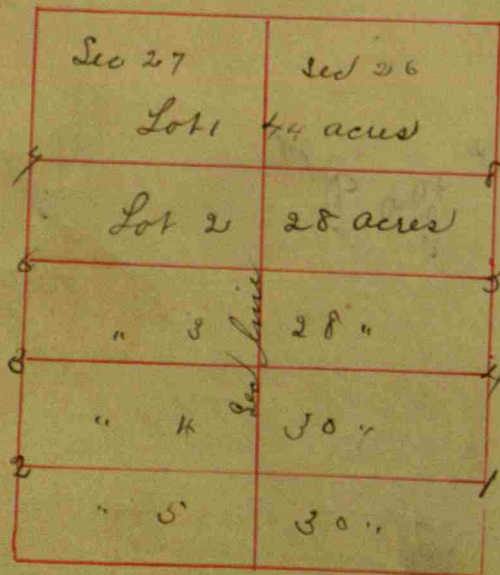 Sec 27 Sec 26
Lot 1 44 acres
Lot 2 28 acres
" 3 28 "
Sec line
" 4 30 "
2 1
" 5 30 "